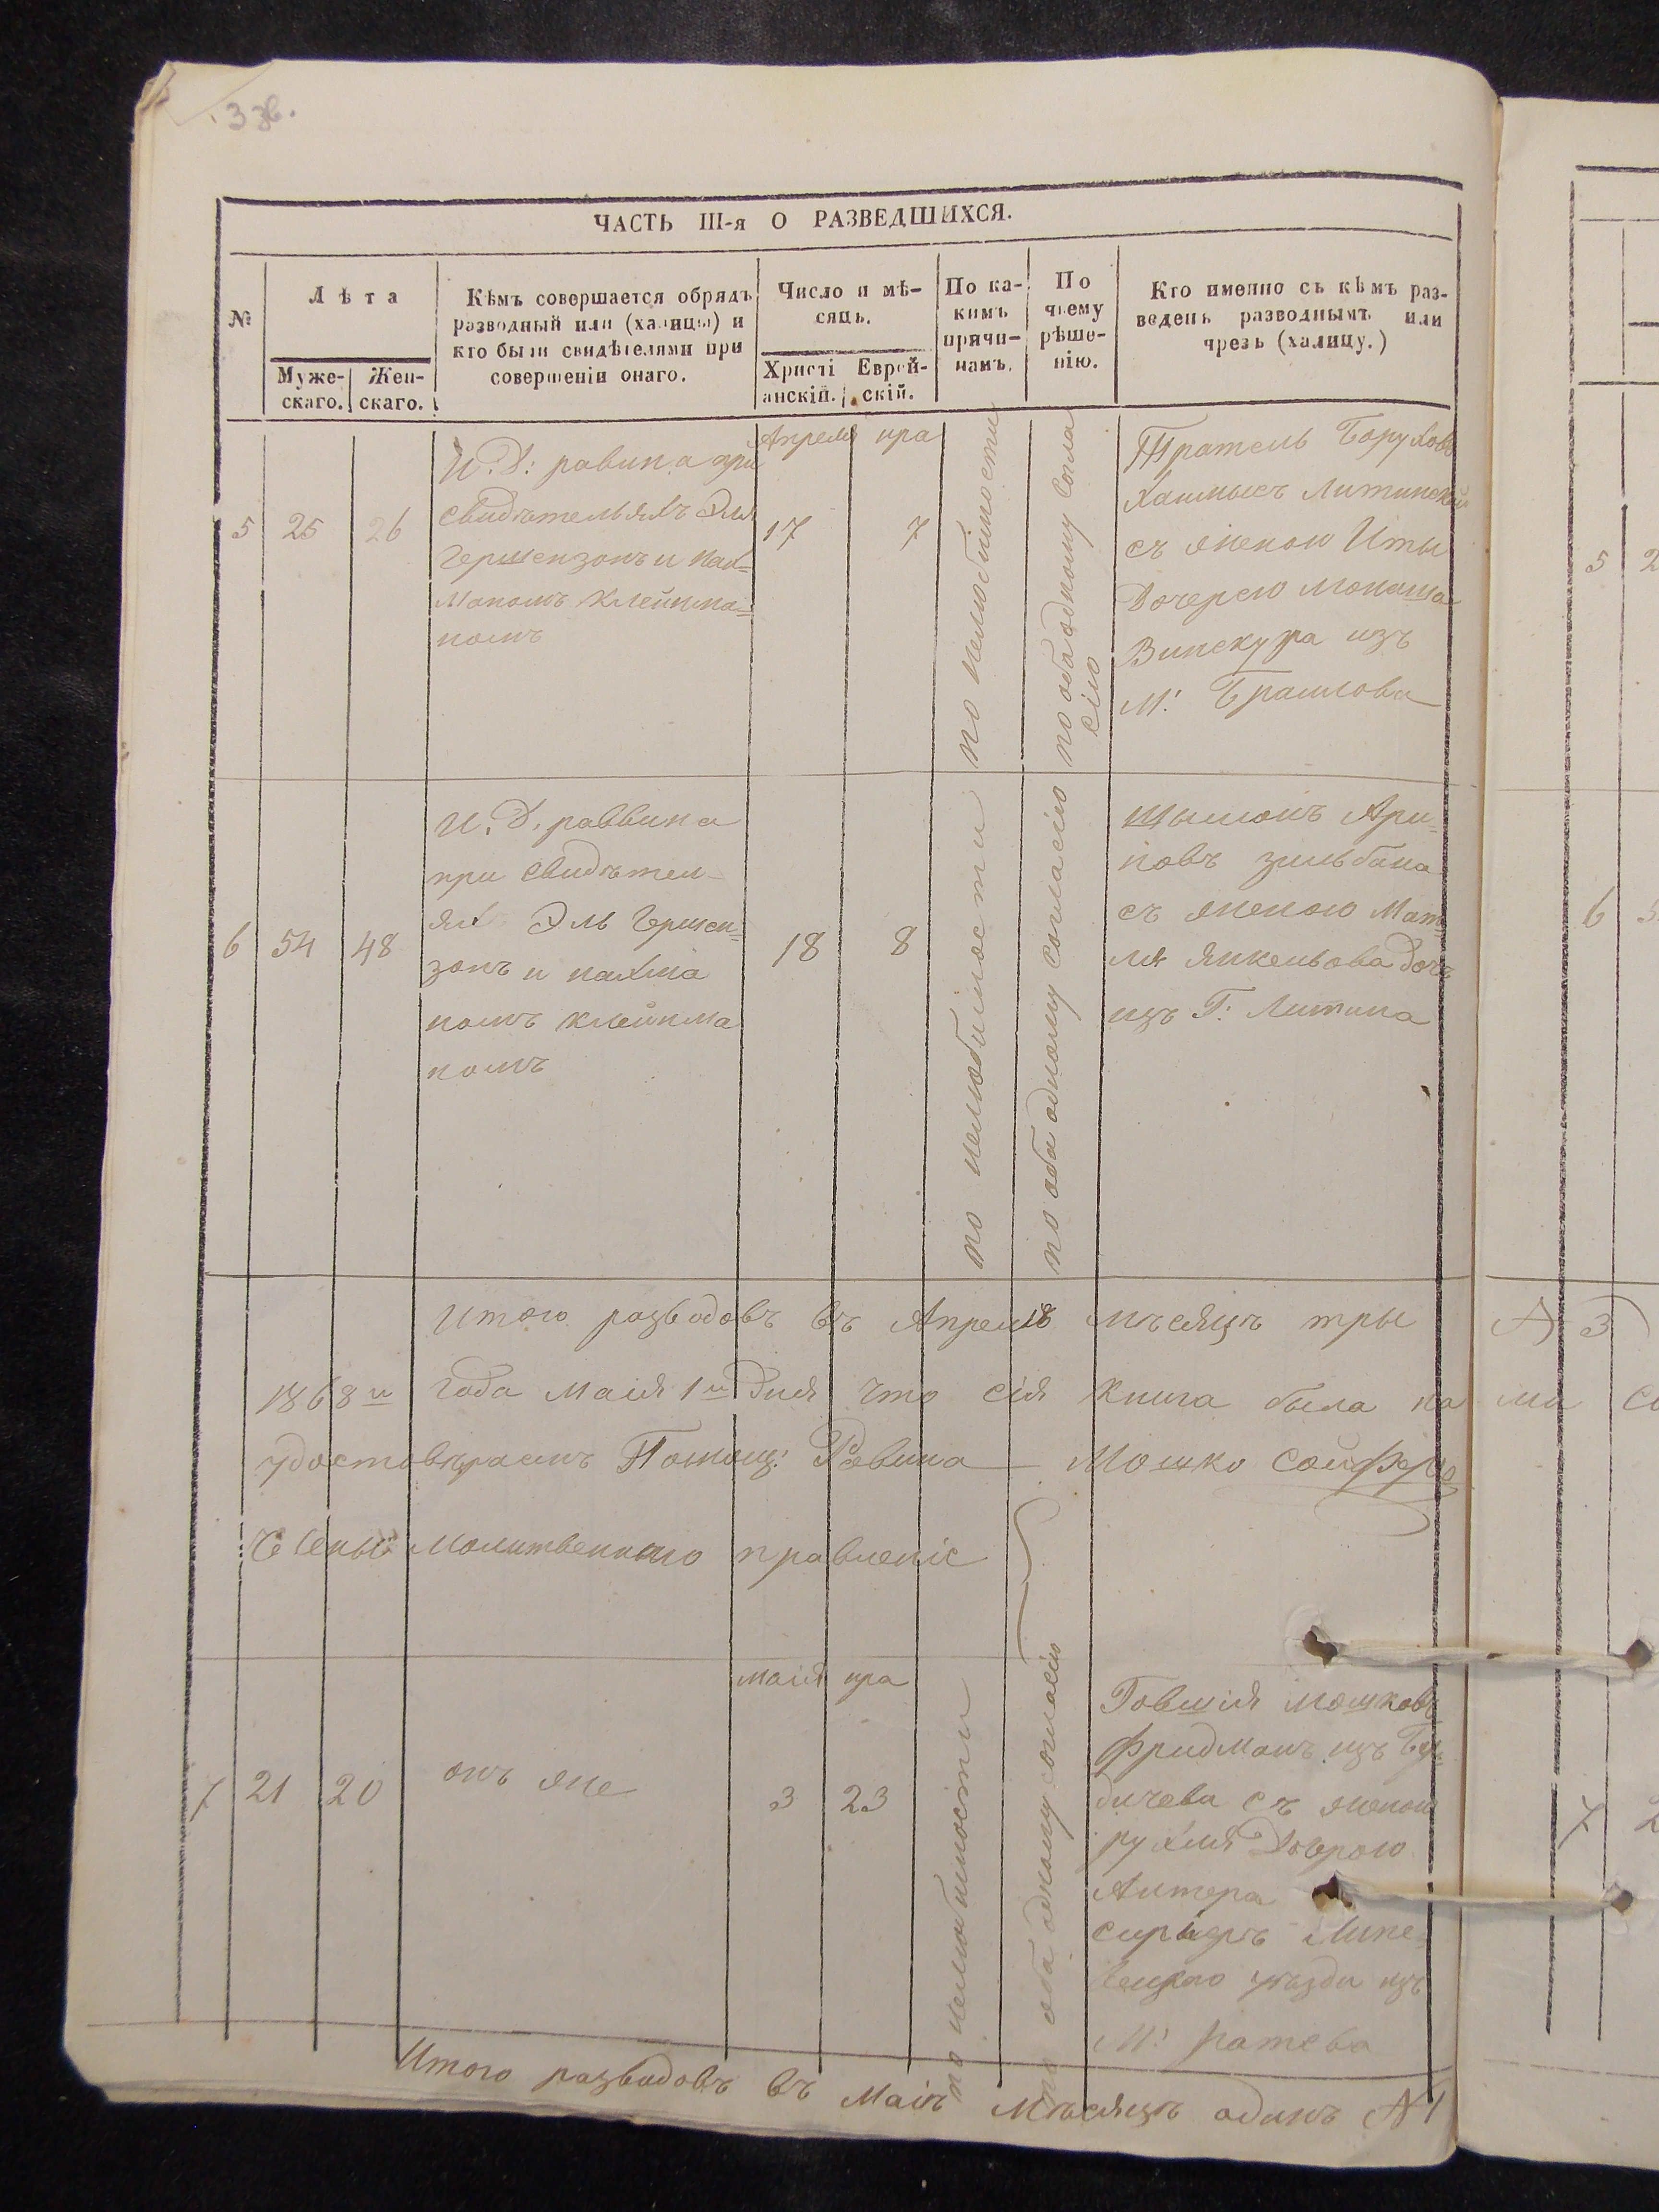 ЧАСТЬ III-я О РАЗВЕДШИХСЯ.
№
Лѣта
Муже-
скаго.
Жен-
скаго.
Кѣмъ совершается обрядъ
разводный или (халицы) и
кто были свидѣтелями при
совершеніи онаго.
Число и мѣ-
сяцъ.
Христі
анскій.
Еврей-
скій.
По ка-
кимъ
причи-
намъ.
По
чьему
рѣше-
нію.
Кто именно съ кѣмъ раз-
веденъ разводнымъ или
чрезъ (халицу.)
5
25
26
И. Д: равина при
свидѣтельяхъ Эля
Гершензонъ и нах=
маномъ клейнма=
номъ
Апреля
17
ира
7
по нелюбимости
по оба одному согла
сію
Боруховъ
Литинскій
съ женою Иты
Дочерею монаша
Винскура изъ
М: Браилова
6
54
48
И. Д. раввина
при свидѣтел-
ях Эль Гершен=
зонъ и нахма
номъ клейнма
номъ
18
8
по нелюбимости
по оба одному согласію
Шлиомъ Ари=
новъ зильбана
съ женою Мат=
ля Янкельова дочь
изъ Г: Литина
Итого разводовъ въ Апрелѣ мѣсяцъ тры
№ 3
1868 и года маія 1 и Дня что сія книга была на
ми
удостовѣраемъ Помощ: Равина Мошко Сойферъ
Члены молитвенного правленіе
7
21
20
онъ же
маія
3
ира
23
по нелюбимости
по оба одному согласію
Говшія мошковъ
Фридманъ изъ Бер=
дичева съ женою
рухля Дочерою
Антера
уѣзда изъ
М:
Итого разводовъ въ Маіѣ Мѣсяцъ одинъ № 1
5
2
6
5
7
2